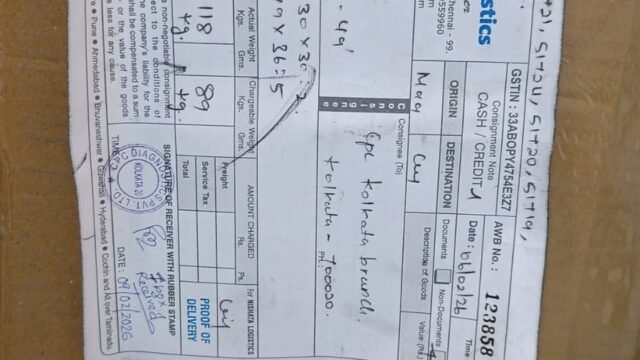 51721, 51724, 51720, 51719,
GSTIN : 33ABOPY4754E3Z7
Consignment Note
CASH / CREDIT
AWB No.: 123858
Date : 06/02/26
Time
istics
hennai - 99.
559960
ORIGIN
DESTINATION
Documents
Non-Documents
Maa
Description of Goods
Value (Rs.)
Consignee
Consignee (To)
Cpc Kolkata branch.
Kolkata - 700020.
PH.:
Actual Weight
Kgs. Gms.
Chargeable Weight
Kgs. Gms.
AMOUNT CHARGED
Rs. Ps.
for MEHATA LOGISTICS
118
kg.
89
kg.
Freight
Service Tax
Total
PROOF OF
DELIVERY
s non-negotiable consignment
ect to the conditions of
the company's liability for the
shall be compensated to a sum
or the value of the goods
s less for any cause.
SIGNATURE OF RECEIVER WITH RUBBER STAMP
DIAGNOSTICS PVT. LTD.
KOLKATA 20
Received
TIME :
DATE : 09/02/2026
Pune • Ahmedabad • Bhuvaneshwar • Guwahati • Hyderabad • Cochin and All over Tamilnadu.